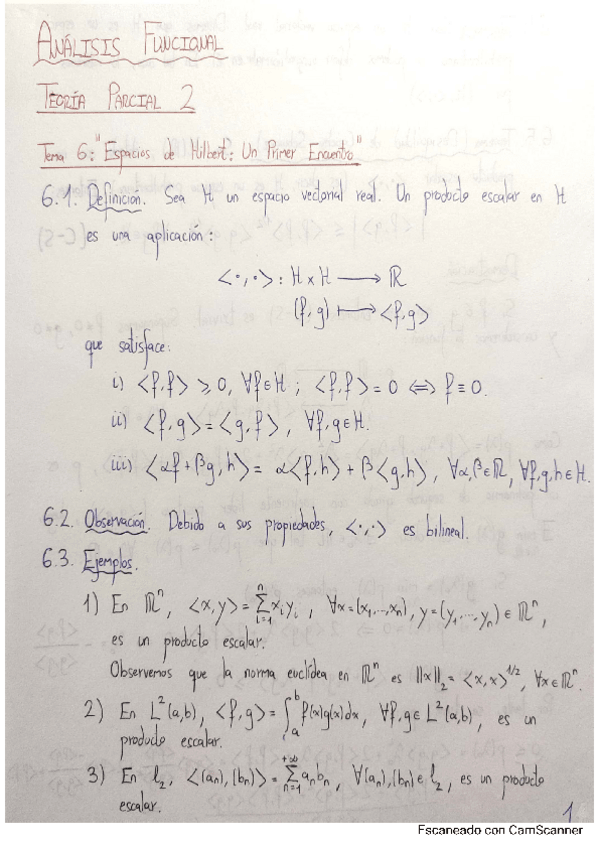 ANÁLISIS FUNCIONAL
TEORÍA PARCIAL 2
Tema 6: "Espacios de Hilbert: Un Primer Encuentro"
6.1. Definición. Sea H un espacio vectorial real. Un producto escalar en H
es una aplicación:
<·,·>: H x H ⟶ ℝ
(f,g) ⟼ <f,g>
que satisface:
i) <f,f> ≥ 0, ∀f∈H ; <f,f> = 0 ⟺ f ≡ 0.
ii) <f,g> = <g,f>, ∀f,g∈H.
iii) <αf + βg, h> = α<f,h> + β<g,h>, ∀α,β∈ℝ, ∀f,g,h∈H.
6.2. Observación. Debido a sus propiedades, <·,·> es bilineal.
6.3. Ejemplos.
1) En ℝⁿ, <x,y> = ∑_{i=1}^{n} xᵢyᵢ , ∀x=(x₁,...,xₙ), y=(y₁,...,yₙ) ∈ ℝⁿ,
es un producto escalar.
Observemos que la norma euclídea en ℝⁿ es ||x||₂ = <x,x>^{1/2}, ∀x∈ℝⁿ.
2) En L²(a,b), <f,g> = ∫_a^b f(x)g(x)dx, ∀f,g∈L²(a,b), es un
producto escalar.
3) En l₂, <(aₙ),(bₙ)> = ∑_{n=1}^{+∞} aₙbₙ, ∀(aₙ),(bₙ)∈l₂, es un producto
escalar.
1
Escaneado con CamScanner